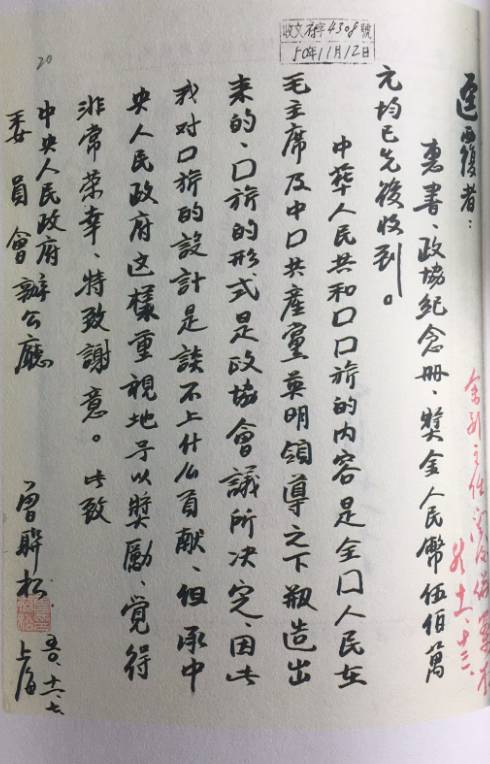 收文 字4308號
50年11月12日
20
逕覆者：
惠書、政協紀念册、奬金人民幣伍佰萬
元均已先後收到。
中華人民共和口口旂的内容是全口人民在
毛主席及中口共產黨英明領導之下造出
来的、口旂的形式是政協會議所决定、因此
我对口旂的設計是談不上什么貢献、但承中
央人民政府这樣重視地予以奬勵、覺得
非常荣幸、特致謝意。此致
中央人民政府
委員會辦公廳
曾聯松
五〇、十一、七
上海
余副主任
十一、十三、